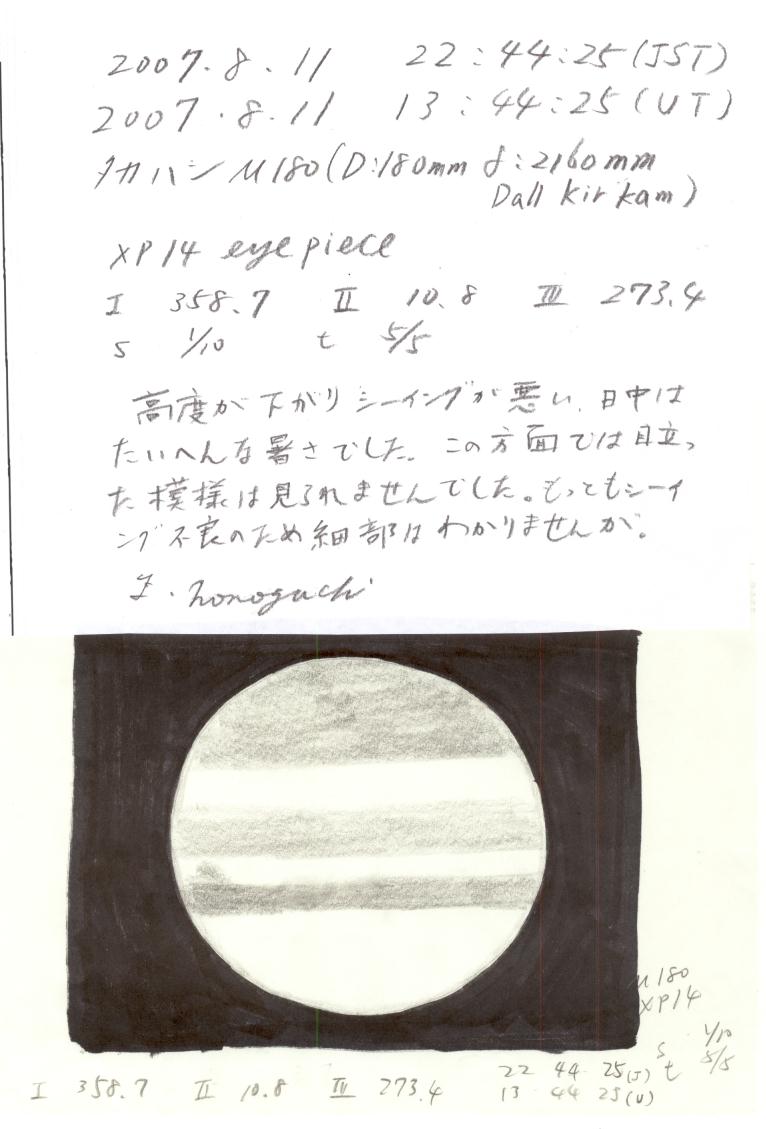 2007.8.11 22:44:25(JST)
2007.8.11 13:44:25(UT)
タカハシ μ180(D:180mm f:2160mm
Dall Kirkam)
XP14 eyepiece
I 358.7 II 10.8 III 273.4
s 1/10 t 5/5
高度が下がりシーイングが悪い、日中は
たいへんな暑さでした。この方面では目立っ
た模様は見られませんでした。もっともシーイ
ング不良のため細部はわかりませんが。
μ180
XP14
s 1/10
t 5/5
22 44 25(J)
13 44 25(U)
I 358.7 II 10.8 III 273.4